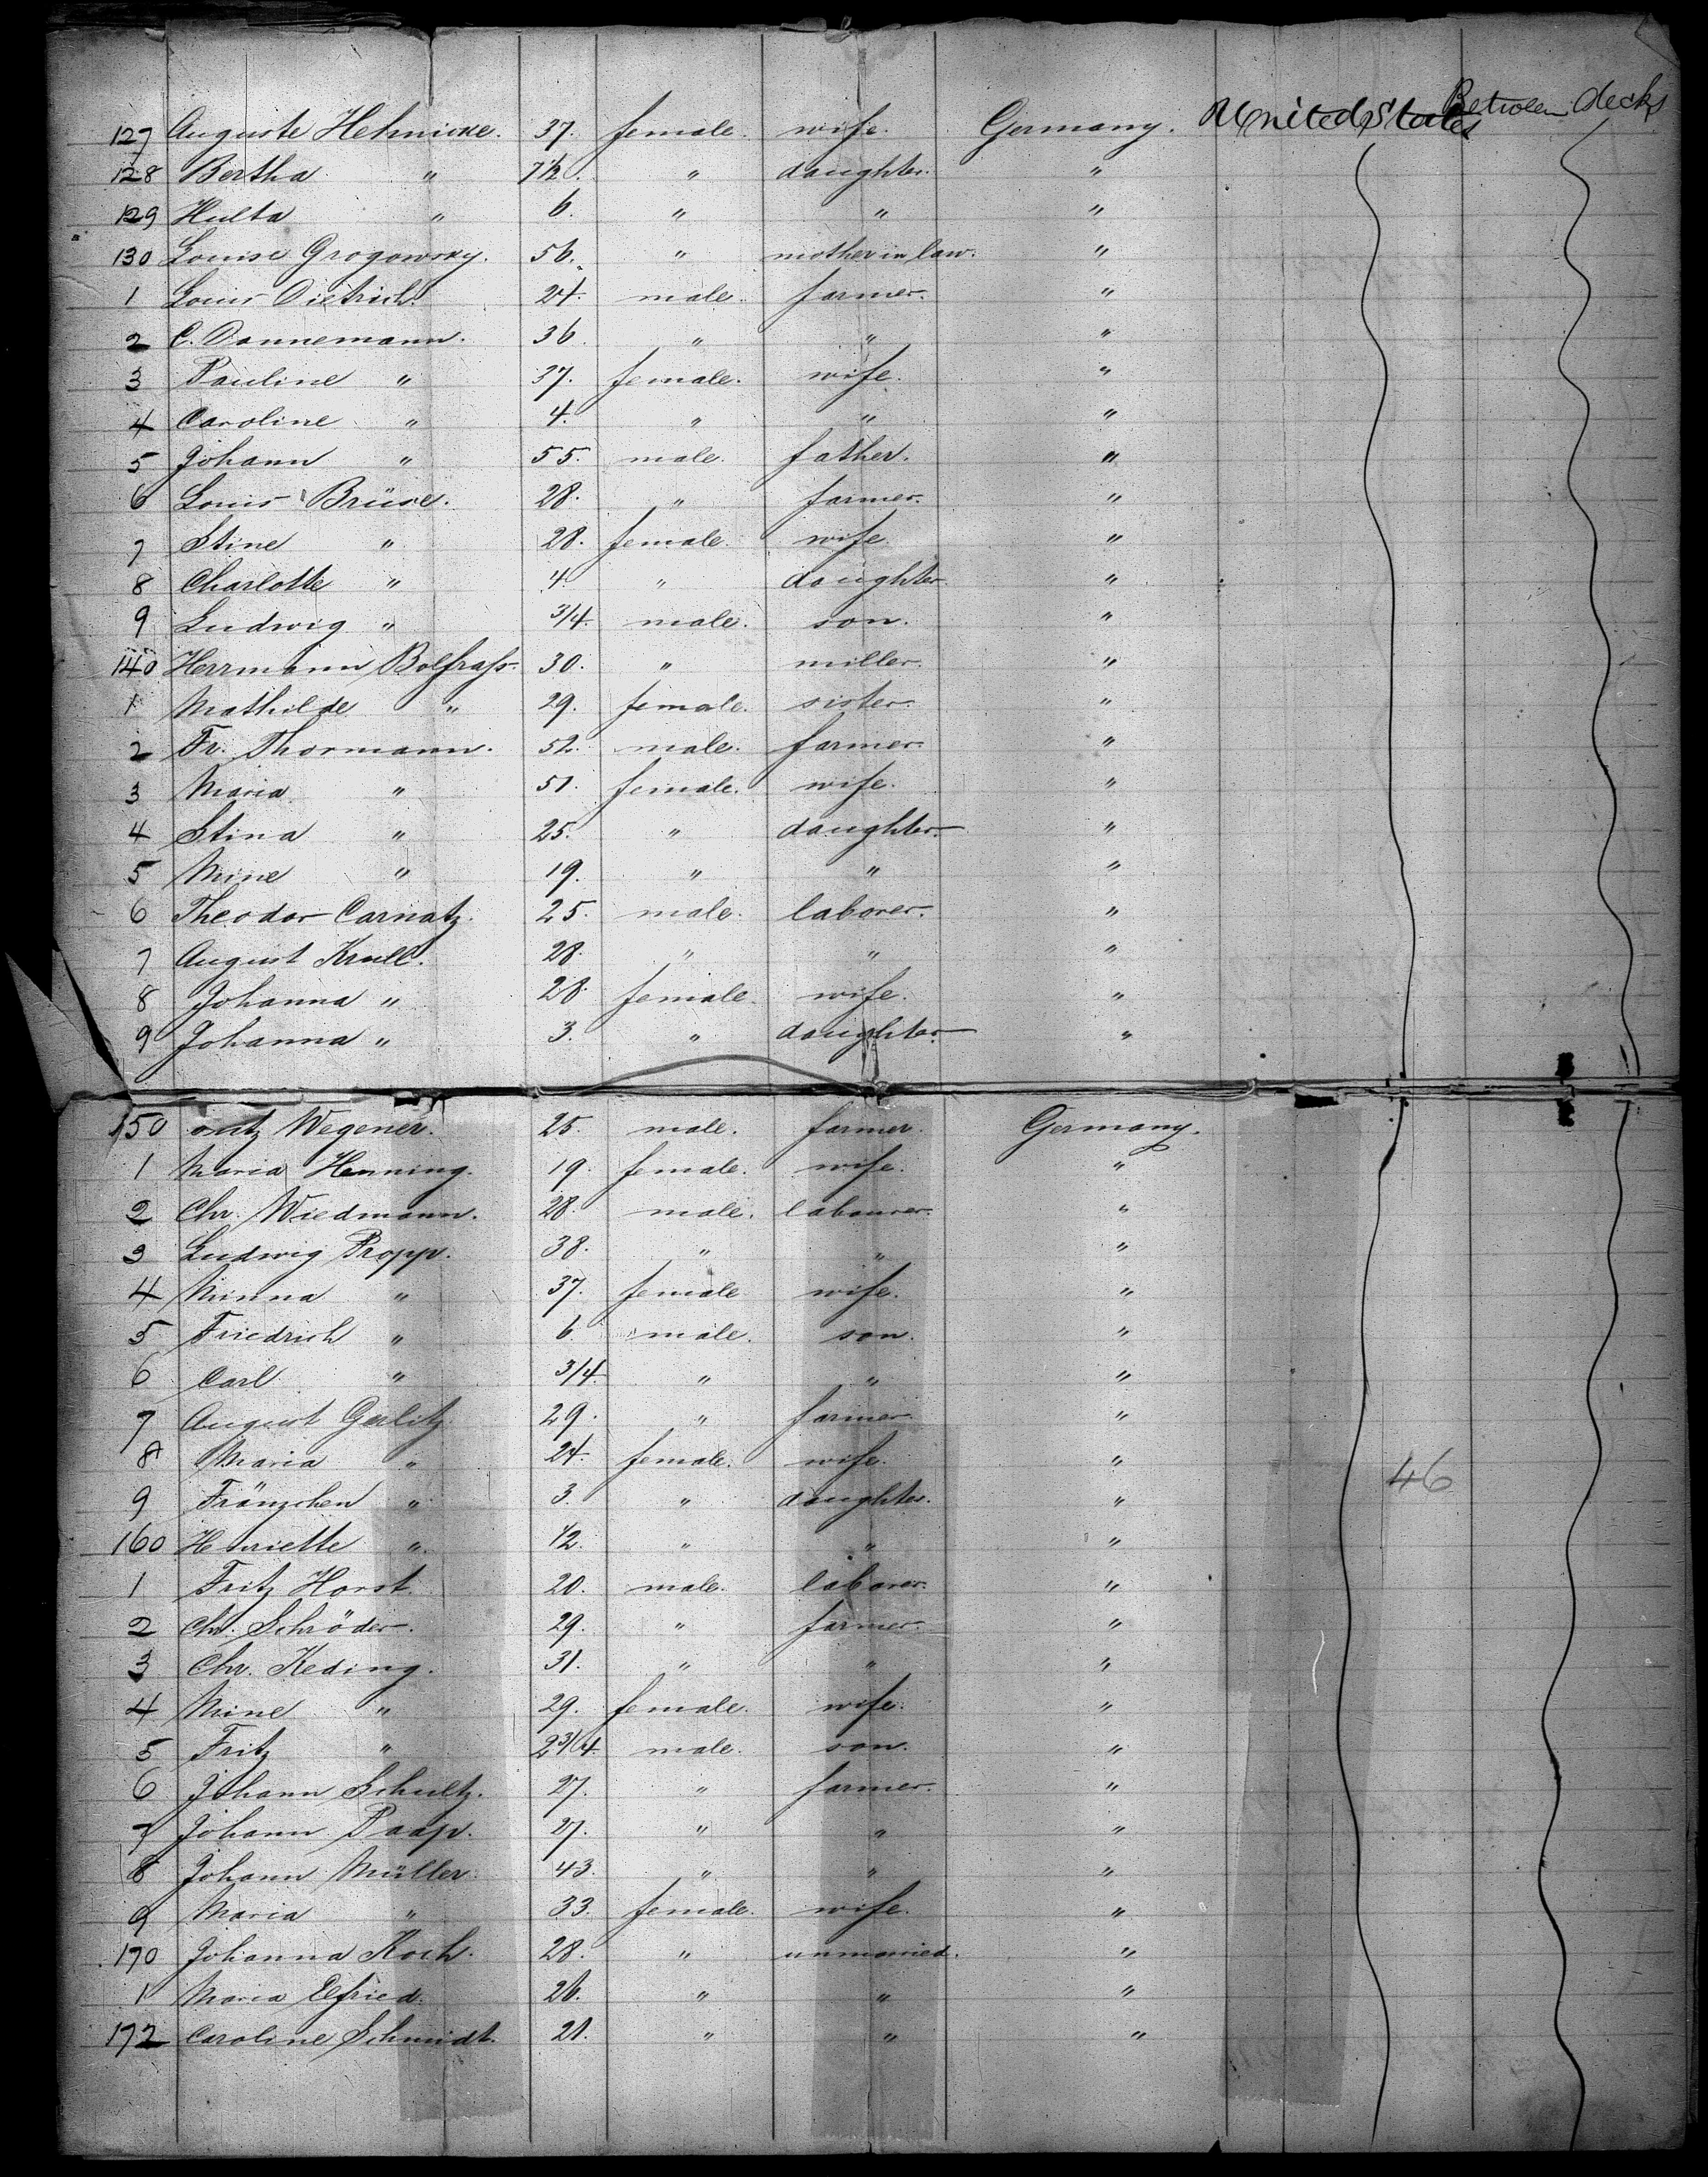 127 Auguste Hehnicke. 37. female. wife. Germany. United States Between decks
128 Bertha " 7 1/2. " daughter. "
129 Hulta " 6. " " "
130 Louise Grogowsky. 56. " mother in law. "
1 Louis Dietrich. 24. male. farmer. "
2 C. Dannemann. 36. " " "
3 Pauline " 37. female. wife. "
4 Caroline " 4. " " "
5 Johann " 55. male. father. "
6 Louis Brüse. 28. " farmer. "
7 Stine " 28. female. wife. "
8 Charlotte " 4. " daughter. "
9 Ludwig " 3/4. male. son. "
140 Herrmann Bolfrass. 30. " miller. "
1 Mathilde " 29. female. sister. "
2 Fr. Thormann. 52. male. farmer. "
3 Maria " 51. female. wife. "
4 Stina " 25. " daughter. "
5 Mine " 19. " " "
6 Theodor Carnatz. 25. male. laborer. "
7 August Krull. 28. " " "
8 Johanna " 28. female. wife. "
9 Johanna " 3. " daughter. "
150 Wegener. 25. male. farmer. Germany.
1 Maria Henning. 19. female. wife. "
2 Chr. Wiedmann. 28. male. labourer. "
3 Ludwig Propp. 38. " " "
4 Minna " 37. female wife. "
5 Friedrich " 6. male. son. "
6 Carl " 3/4. " " "
7 August Gerlitz. 29. " farmer. "
8 Maria " 24. female. wife. "
9 Fränzchen " 3. " daughter. "
46
160 Henriette " 1/2. " " "
1 Fritz Horst. 20. male. laborer. "
2 Chr. Schröder. 29. " farmer. "
3 Chr. Keding. 31. " " "
4 Mine " 29. female. wife. "
5 Fritz " 2 3/4. male. son. "
6 Johann Schultz. 27. " farmer. "
7 Johann Paap. 27. " " "
8 Johann Müller. 43. " " "
9 Maria " 33. female. wife. "
170 Johanna Koch. 28. " unmarried. "
1 Maria 26. " " "
172 Caroline Schmidt. 21. " " "